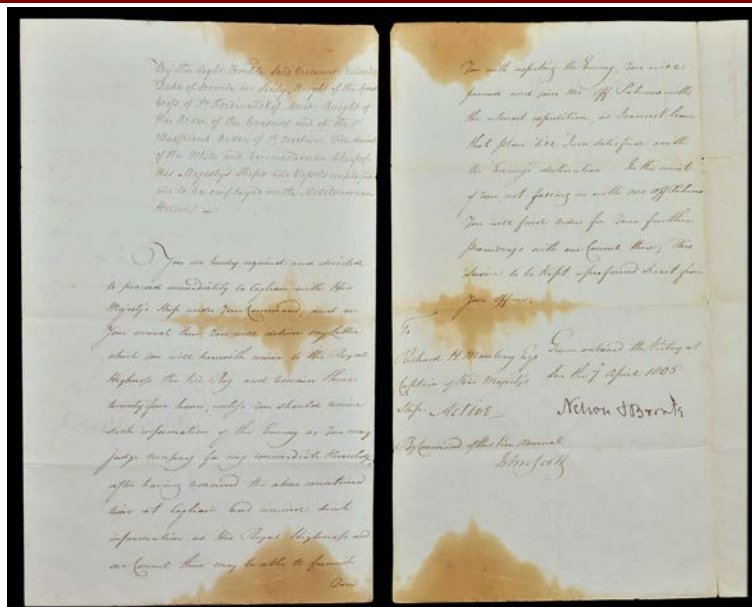 By the Right Honble Lord Viscount Nelson
Duke of Bronte in Sicily, Knight of the Great
Cross of St Ferdinand & of Merit, Knight of
the Order of the Crescent and of the
Order of St Joachim, Vice Admiral
of the White and Commander in Chief of
His Majesty's Ships and Vessels employed
and to be employed on the Mediterranean
Station —
You are hereby required and directed
to proceed immediately to Cagliari with His
Majesty's Ship under Your Command, and on
Your arrival there, You will deliver my Letter
which You will herewith receive to His Royal
Highness the Vice Roy and remain there
twenty four hours, unless You should receive
such information of the Enemy as You may
judge necessary for my immediate knowledge,
after having remained the above mentioned
time at Cagliari and received such
information as His Royal Highness and
our Consul there may be able to furnish
You
You with respecting the Enemy, You will
proceed and join me off Palermo with
the utmost expedition, as I cannot leave
that place till I am satisfied with
the Enemy's destination. In the event
of Your not falling in with me off Palermo
You will find orders for Your further
proceedings with our Consul there; This
Service to be kept a profound secret from
Your Officers.
To
Richard H. Moubray Esqr
Captain of His Majesty's
Ship Active
Given onboard the Victory at
Sea the 7 April 1805
Nelson & Bronte
By Command of the Vice Admiral
John Scott